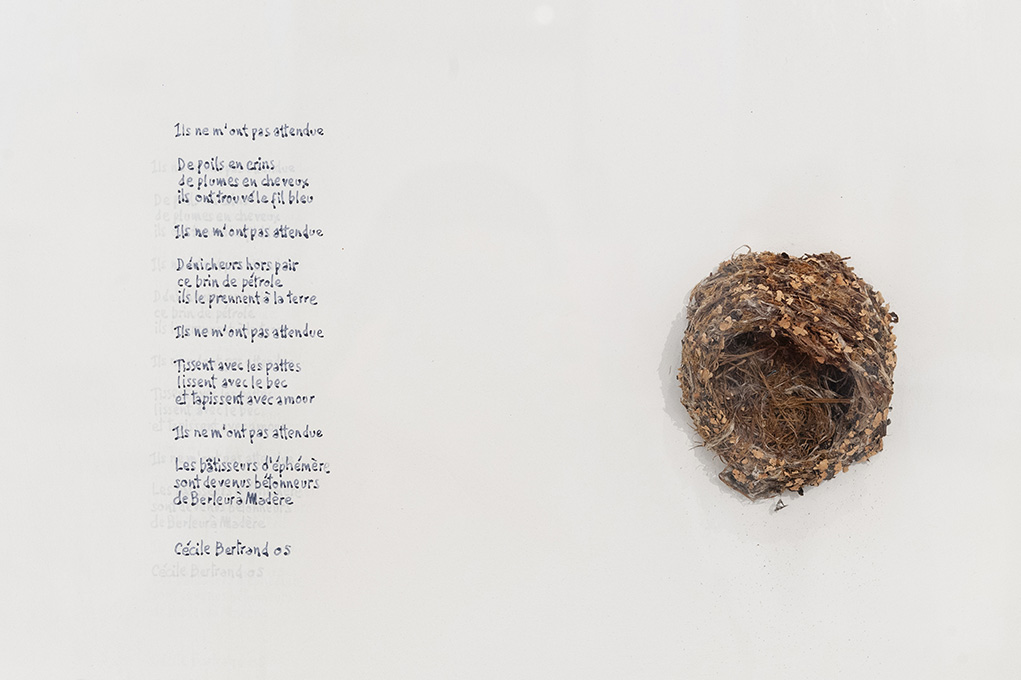 Ils ne m'ont pas attendue
De poils en crins
de plumes en cheveux
ils ont trouvé le fil bleu
Ils ne m'ont pas attendue
Dénicheurs hors pair
ce brin de pétrole
ils le prennent à la terre
Ils ne m'ont pas attendue
Tissent avec les pattes
lissent avec le bec
et tapissent avec amour
Ils ne m'ont pas attendue
Les bâtisseurs d'éphémère
sont devenus bétonneurs
de Berleur à Madère
Cécile Bertrand 05